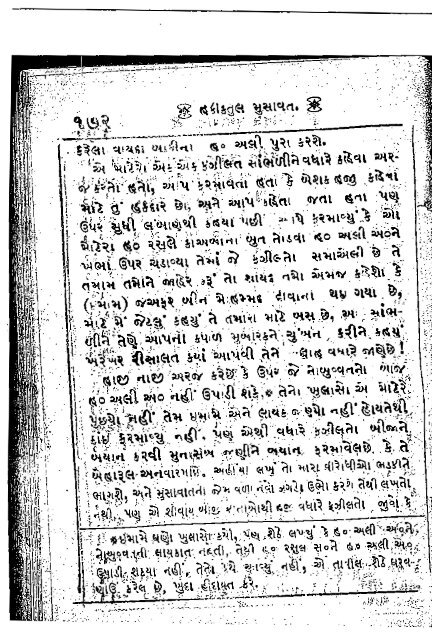 ૧૭૨
હકીકતુલ મુસાવત.
કરેલા વાયદા બાકીના હ૦ અલી પુરા કરશે.
એ માટેરો એક એક ફઝીલત સાંભળીને વધારે કહેવા અર-
જ કરતો હતો, આપ ફરમાવતા હતા કે બેશક હજી કહેવા
માટે તું હકદાર છે, અને આપ કહેતા જતા હતા પણ
ઉપર સુધી લખાણથી કહયા પછી આપે ફરમાવ્યું કે એ
માટેરા હ૦ રસુલે કાબાના બુત તોડવા હ૦ અલી અ૦ને
ખભા ઉપર ચડાવ્યા તેમાં જે ફઝીલતો સમાએલી છે તે
તમામ તમોને જાહેર કરૂં તો શાયદ તમો એમજ કહેશો કે
જઅફર બીન મોહમ્મદ દીવાના થઇ ગયા છે,
માટે મેં જેટલું કહયું તે તમારા માટે બસ છે, આ સાંભ-
ળીને તેણે આપના કપાળ મુબારકને ચુંબન કરીને કહયું
ખરેખર રીસાલત કયાં આપવી તેને અલ્લાહ વધારે જાણે છે!
હાજી નાજી અરજ કરે છે કે ઉપર જે નોબુવ્વતનો બોજ
હ૦ અલી અ૦ નહીં ઉપાડી શકે તેનો ખુલાસો એ માટેરે
પુછયો નહીં તેમ ઇમામે એને લાયક જાણ્યો નહીં હોય તેથી
કાંઇ ફરમાવ્યું નહીં. પણ એથી વધારે ફઝીલતો બીજાને
બયાન કરવી મુનાસેબ જાણીને બયાન ફરમાવેલ છે. કે તે
બેહારૂલ અનવારમાંથી અહીંયા લખું તો મારા વીરોધીઓ ભડકીને
ભાગશે, અને મુસાવાતનો જેમ વળી નવો ઝગડો ઉભો કરશે તેથી લખતો
નથી. પણ એ શીવાય બીજી હજી વધારે ફઝીલતો જુવો કે
ઇમામે ઘણો ખુલાસો કર્યો, પણ શેઠે લખ્યું કે હ૦ અલી અ૦ને
નોબુવ્વતની લાયકાત નહતી, તેથી હ૦ રસુલ સ૦ને હ૦ અલી અ૦
ઉપાડી શકયા નહીં, નહીં, એ તાવીલ શેઠે
કરેલ છે, ખુદા હીદાયત કરે.